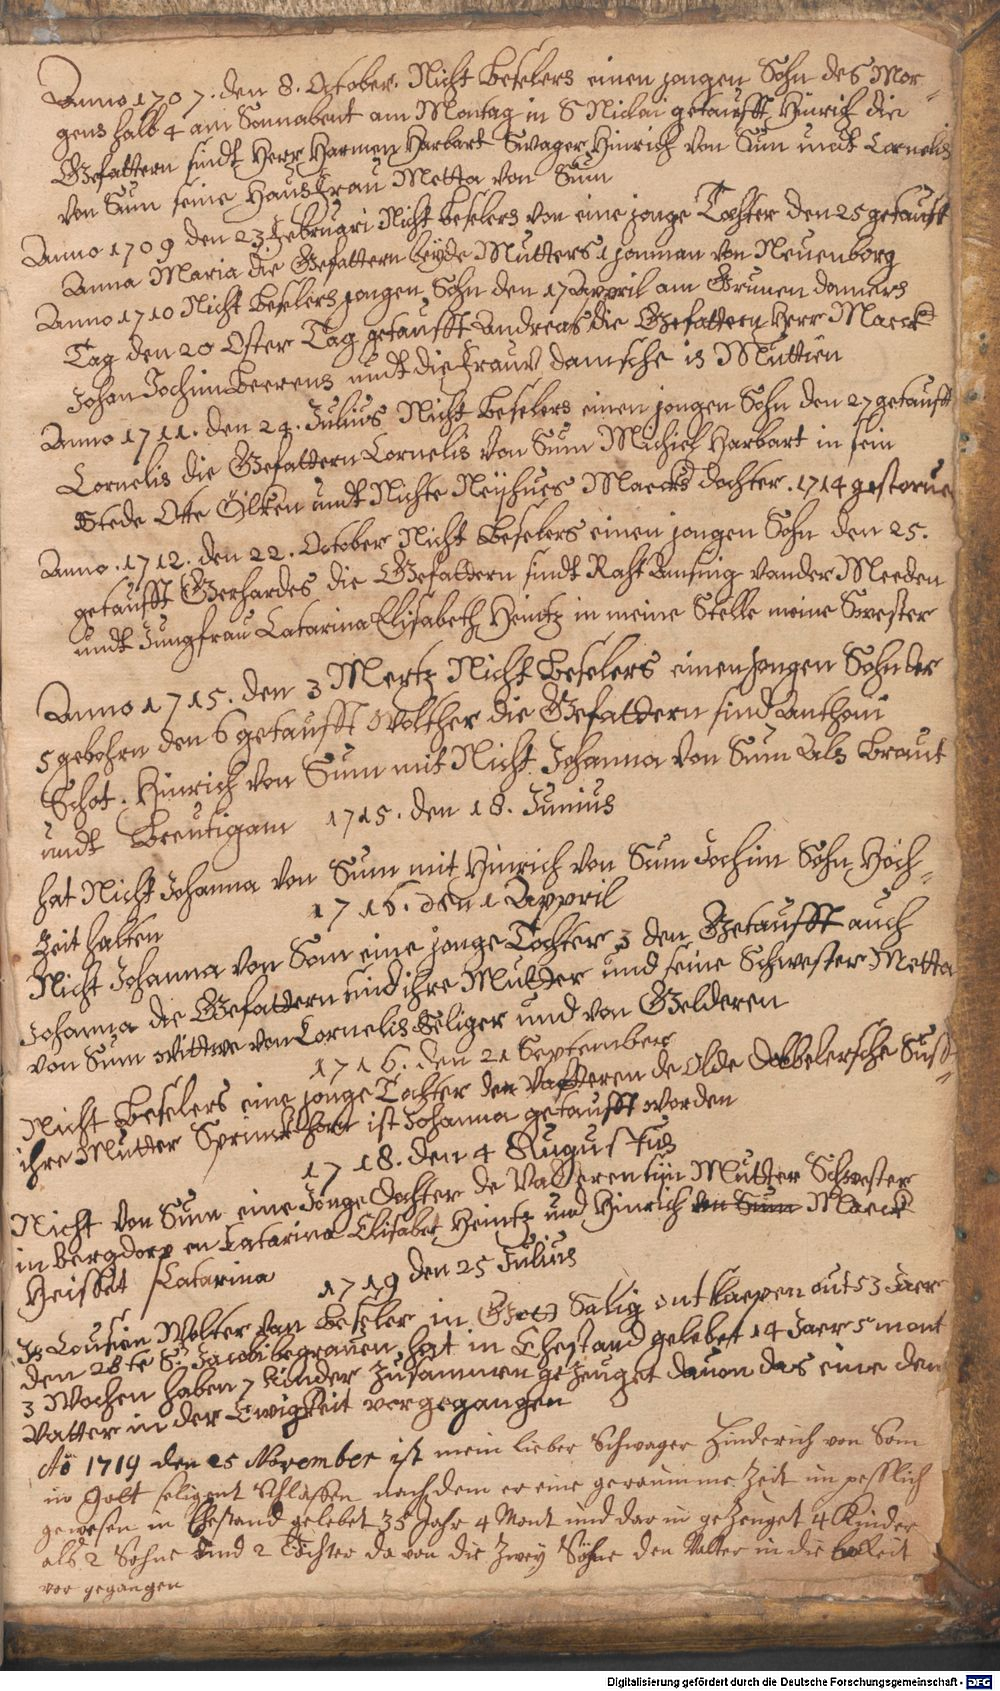 Anno 1707. den 8. October. Nicht Beselers einen jongen Sohn des Mor-
gens halb 4 am Sonnabent am Montag in S Niclai getaufft Hinrich die
Gefattern sindt Herr Harmen Harbart Swager Hinrich von Süm undt Cornelis
von Sum seine Hausfrau Metta von Süm
Anno 1709 den 23 Februari Nicht Beselers von eine jonge Tochter den 25 getaufft
Anna Maria die Gefattern beyde Mutters 1 jonman von Neuenborg
Anno 1710 Nicht Beselers jongen Sohn den 17 Appril am Grunen donners
Tag den 20 Oster Tag getaufft Andreas die Gefattern Herr Maeck
Johan Jochim Beerens undt die Frauw damsche is Muttien
Anno 1711. den 24. Julius Nicht Beselers einen jongen Sohn den 27 getaufft
Cornelis die Gefattern Cornelis von Sum Michiel Harbart in sein
Stede Otte Gilken undt Nichte Neijhues Maecks dochter. 1714 gestorue
Anno. 1712. den 22. October Nicht Beselers einen jongen Sohn den 25.
getaufft Gerhardes die Gefattern sindt Raht Ansing vander Meeden
undt Jungfrau Catarina Elisabeth Heintz in meine Stelle meine Swester
Anno 1715. den 3 Mertz Nicht Beselers einen jongen Sohn der
5 gebohrn den 6 getaufft Wolther die Gefattern sind Anthoni
Schot. Hinrich von Sum mit Nicht Johanna von Sum als Braut
undt Breutigam 1715. den 18. Junius
hat Nicht Johanna von Sum mit Hinrich von Sum Jochim Sohn Hoch-
Zeit halten
1716. den 1 Appril
Nicht Johanna von Som eine jonge Tochter 3 den Getaufft auch
Johanna die Gefattern sind ihre Mutter und seine Schwester Metta
von Sum Wittwe von Cornelis Seliger und von Gelderen
1716. den 21 September
Nicht Beselers eine jonge Tochter den Vadderen de Olde Dobbelersche
ihre Mutter ist Johanna getaufft worden
1718. den 4 Augustus
Nicht von Sum eine Jonge Dochter de Vadderen sijn Mutter Schwester
in Bergdorp en Catarina Elisabet Heintz und Hinrich von Sum Maeck
Heisset Catarina
1719 den 25 Julius
Is Cousien Wolter van Beseler in Gott Salig ontslaepen out 53 Jaer
den 28te S. Jacobi begrauen hat in Ehestand gelebet 14 Jaer 5 mont
3 Wochen haben 7 Kinder Zusammen gezeuget davon das eine dem
Vatter in der Ewigkeit vorgegangen
Aõ 1719 den 25 November ist mein lieber Schwager Hinderich von Som
in Gott seligent Schlaffen nach dem er eine geraumme Zeit im pesslich
gewesen in Ehestand gelebet 35 Jahr 4 Mont und dar in gezeuget 4 Kinder
als 2 Sohne und 2 Töchter da von die Zwey Söhne den Vatter in die
vor gegangen
Digitalisierung gefördert durch die Deutsche Forschungsgemeinschaft - DFG